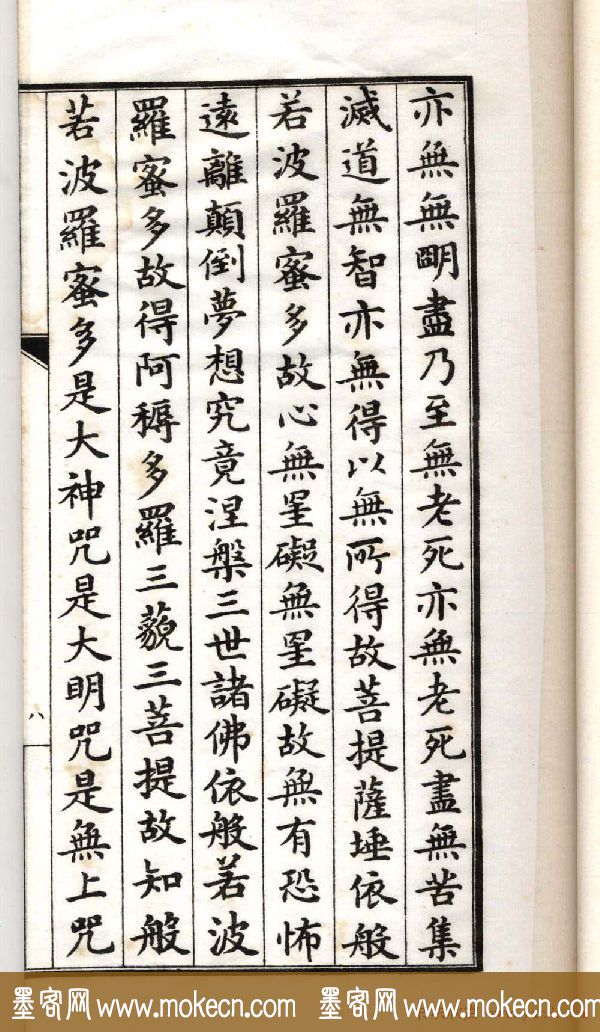 亦無無明盡乃至無老死亦無老死盡無苦集
滅道無智亦無得以無所得故菩提薩埵依般
若波羅蜜多故心無罣礙無罣礙故無有恐怖
遠離顛倒夢想究竟涅槃三世諸佛依般若波
羅蜜多故得阿耨多羅三藐三菩提故知般
若波羅蜜多是大神咒是大明咒是無上咒
八
墨客网 www.mokecn.com 墨客网 www.mokecn.com